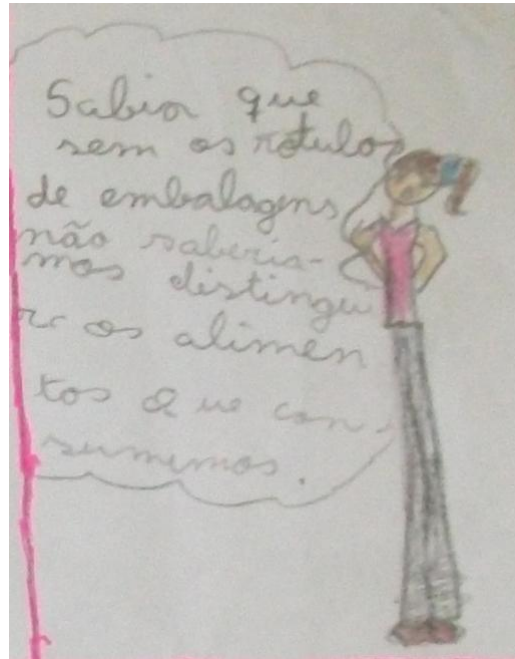 Sabia que
sem os rotulos
de embalagens
não saberia-
mos distingu
ir os alimen
tos que con-
sumimos.